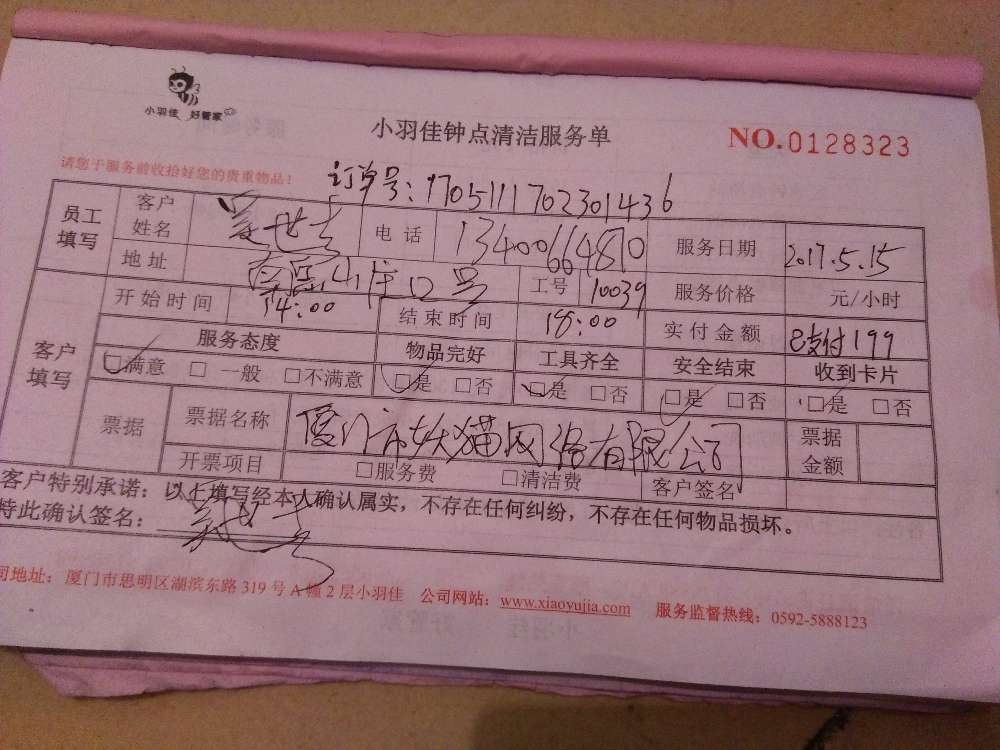 小羽佳 好管家
小羽佳钟点清洁服务单
NO.0128323
请您于服务前收拾好您的贵重物品！
订单号：170511170230143 6
员工填写 客户姓名 吴世 电话 13400664870 服务日期 2017.5.15
地址 工号 10039 服务价格 元/小时
客户填写 开始时间 14:00 结束时间 18:00 实付金额 已支付199
服务态度 物品完好 工具齐全 安全结束 收到卡片
□满意 □一般 □不满意 □是 □否 □是 □否 □是 □否 □是 □否
票据 票据名称 厦门市妖猫网络有限公司 票据金额
开票项目 □服务费 □清洁费 客户签名
客户特别承诺：以上填写经本人确认属实，不存在任何纠纷，不存在任何物品损坏。
特此确认签名：
司地址：厦门市思明区湖滨东路319号A幢2层小羽佳 公司网站：www.xiaoyujia.com 服务监督热线：0592-5888123